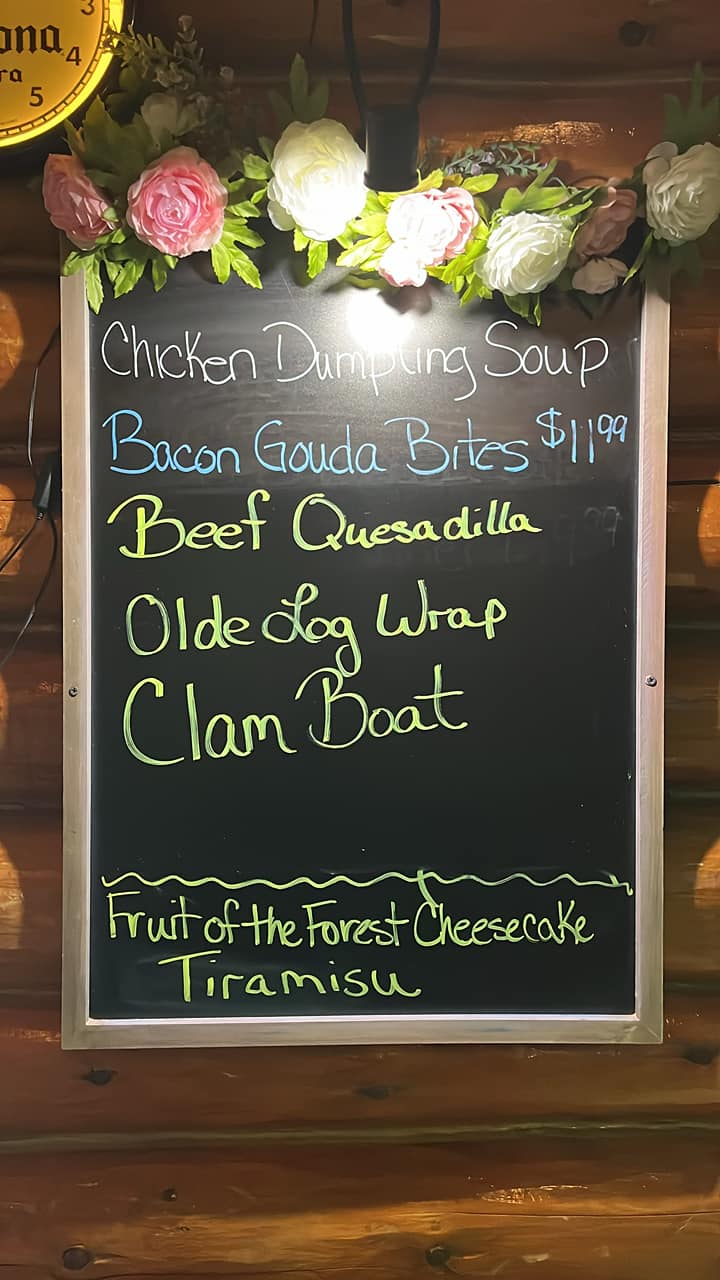 3
4
5
Chicken Dumpling Soup
Bacon Gouda Bites $11.99
Beef Quesadilla
Olde Log Wrap
Clam Boat
Fruit of the Forest Cheesecake
Tiramisu